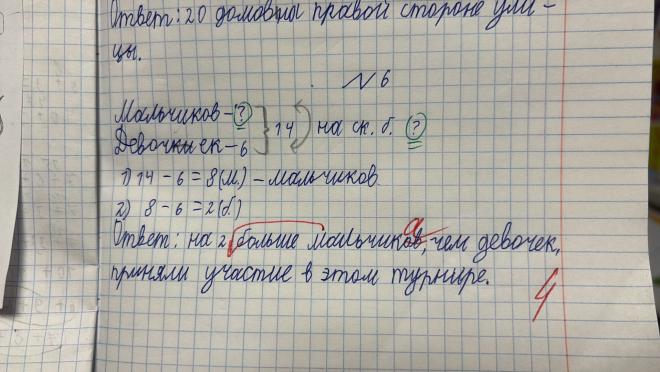 Ответ: 20 домов на правой стороне ули-
цы.
№ 6
Мальчиков - ?
Девочек - 6
} 14 на ск. б. ?
1) 14 - 6 = 8 (м.) - мальчиков.
2) 8 - 6 = 2 (б.)
Ответ: на 2 больше мальчиков, чем девочек,
а
приняли участие в этом турнире.
4